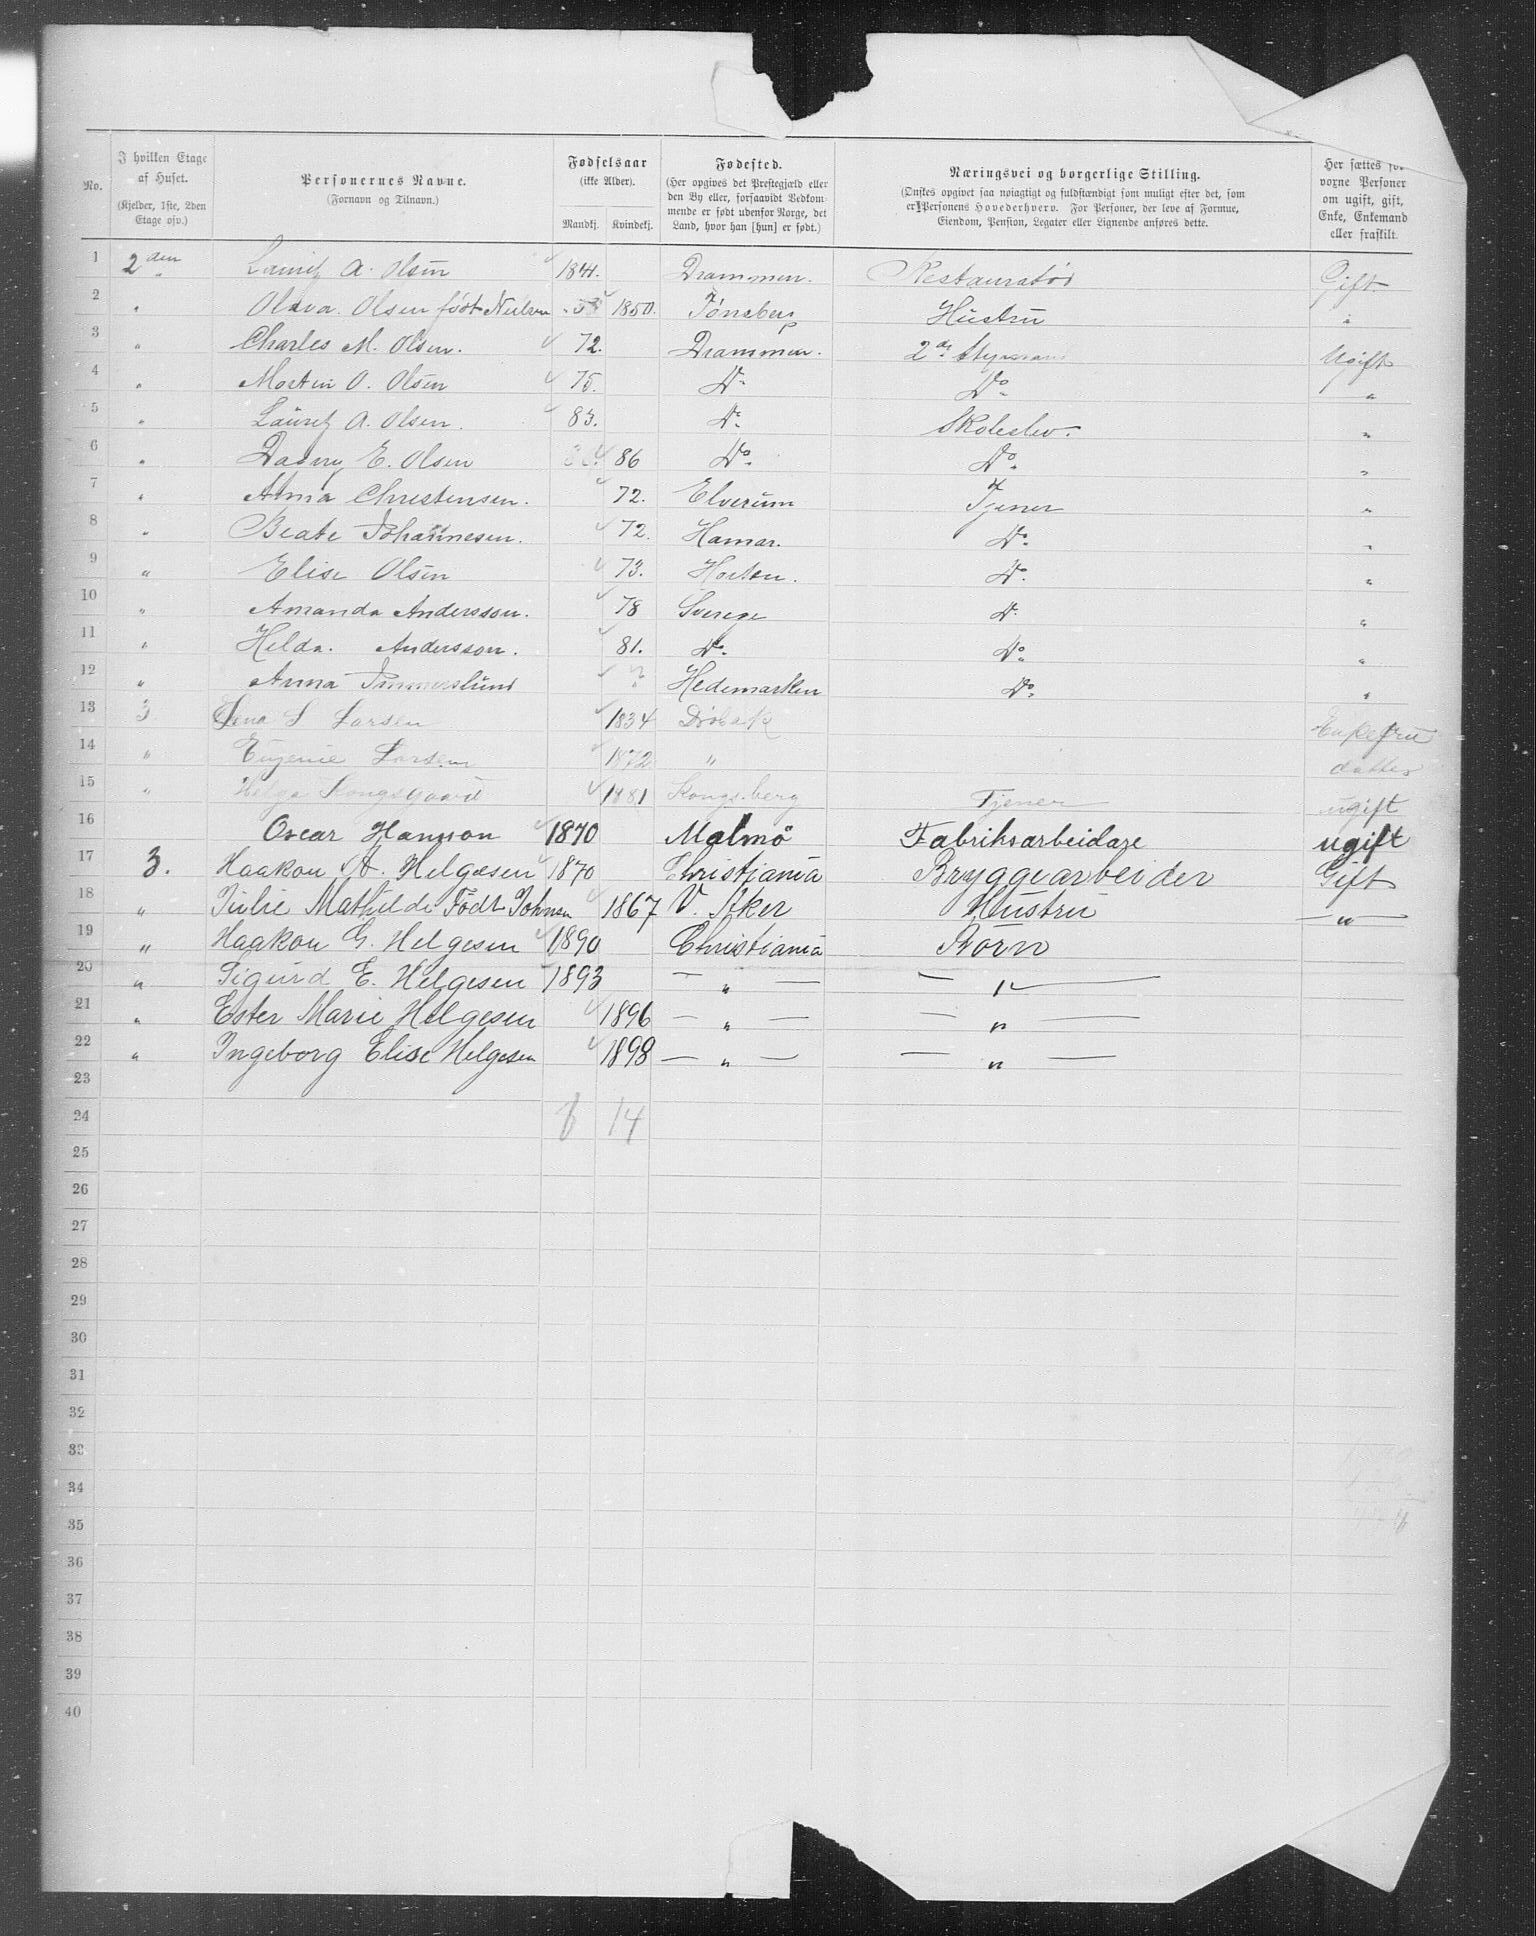 No.
I hvilken Etage af Huset.
(Kjelder, 1ste, 2den Etage osv.)
Personernes Navne.
(Fornavn og Tilnavn.)
Fødselsaar
(ikke Alder).
Mandkj. Kvindekj.
Fødested.
(Her opgives det Prestegjæld eller den By eller, forsaavidt Vedkommende er født udenfor Norge, det Land, hvor han [hun] er født.)
Næringsvei og borgerlige Stilling.
(Ønskes opgivet saa nøiagtigt og fuldstændigt som muligt efter det, som er Personens Hovederhverv. For Personer, der leve af Formue, Eiendom, Pension, Legater eller Lignende anføres dette.
Her sættes for voxne Personer om ugift, gift, Enke, Enkemand eller fraskilt.
1 2den Lauritz A. Olsen 1841. Drammen. Restauratør Gift
2 " Olava Olsen født Nielsen 1850. Tønsberg Hustru "
3 " Charles M. Olsen. 72. Drammen. 2den Styrmand Ugift
4 " Morten O. Olsen 75. Do Do "
5 " Lauritz A. Olsen. 83. Do Skoleelev. "
6 " Dagny E. Olsen 86 Do Do "
7 " Alma Christensen. 72. Elverum Tjener "
8 " Beate Johannesen. 72. Hamar. Do "
9 " Elise Olsen 73. Horten. Do "
10 " Amanda Andersson. 78 Sverige Do "
11 " Hilda. Andersson. 81. Do Do "
12 " Anna Immerslund ? Hedemarken Do "
13 3 Lena S Larsen 1834 Drøbak Enkefru
14 " Eugenie Larsen 1872 " datter
15 " Helga Kongsgaard 1881 Kongsberg Tjener ugift
16 Oscar Hanson 1870 Malmö Fabriksarbeidare ugift
17 3. Haakon A. Helgesen 1870 Christiania Bryggearbeider Gift
18 " Julie Mathilde Født Johnsen 1867 V. Aker Hustru — " —
19 " Haakon G. Helgesen 1890 Christiania Börn
20 " Sigurd E. Helgesen 1893 — " — — " —
21 " Ester Marie Helgesen 1896 — " — — " —
22 " Ingeborg Elise Helgesen 1898 — " — — " —
23
24 8 14
25
26
27
28
29
30
31
32
33
34
35
36
37
38
39
40